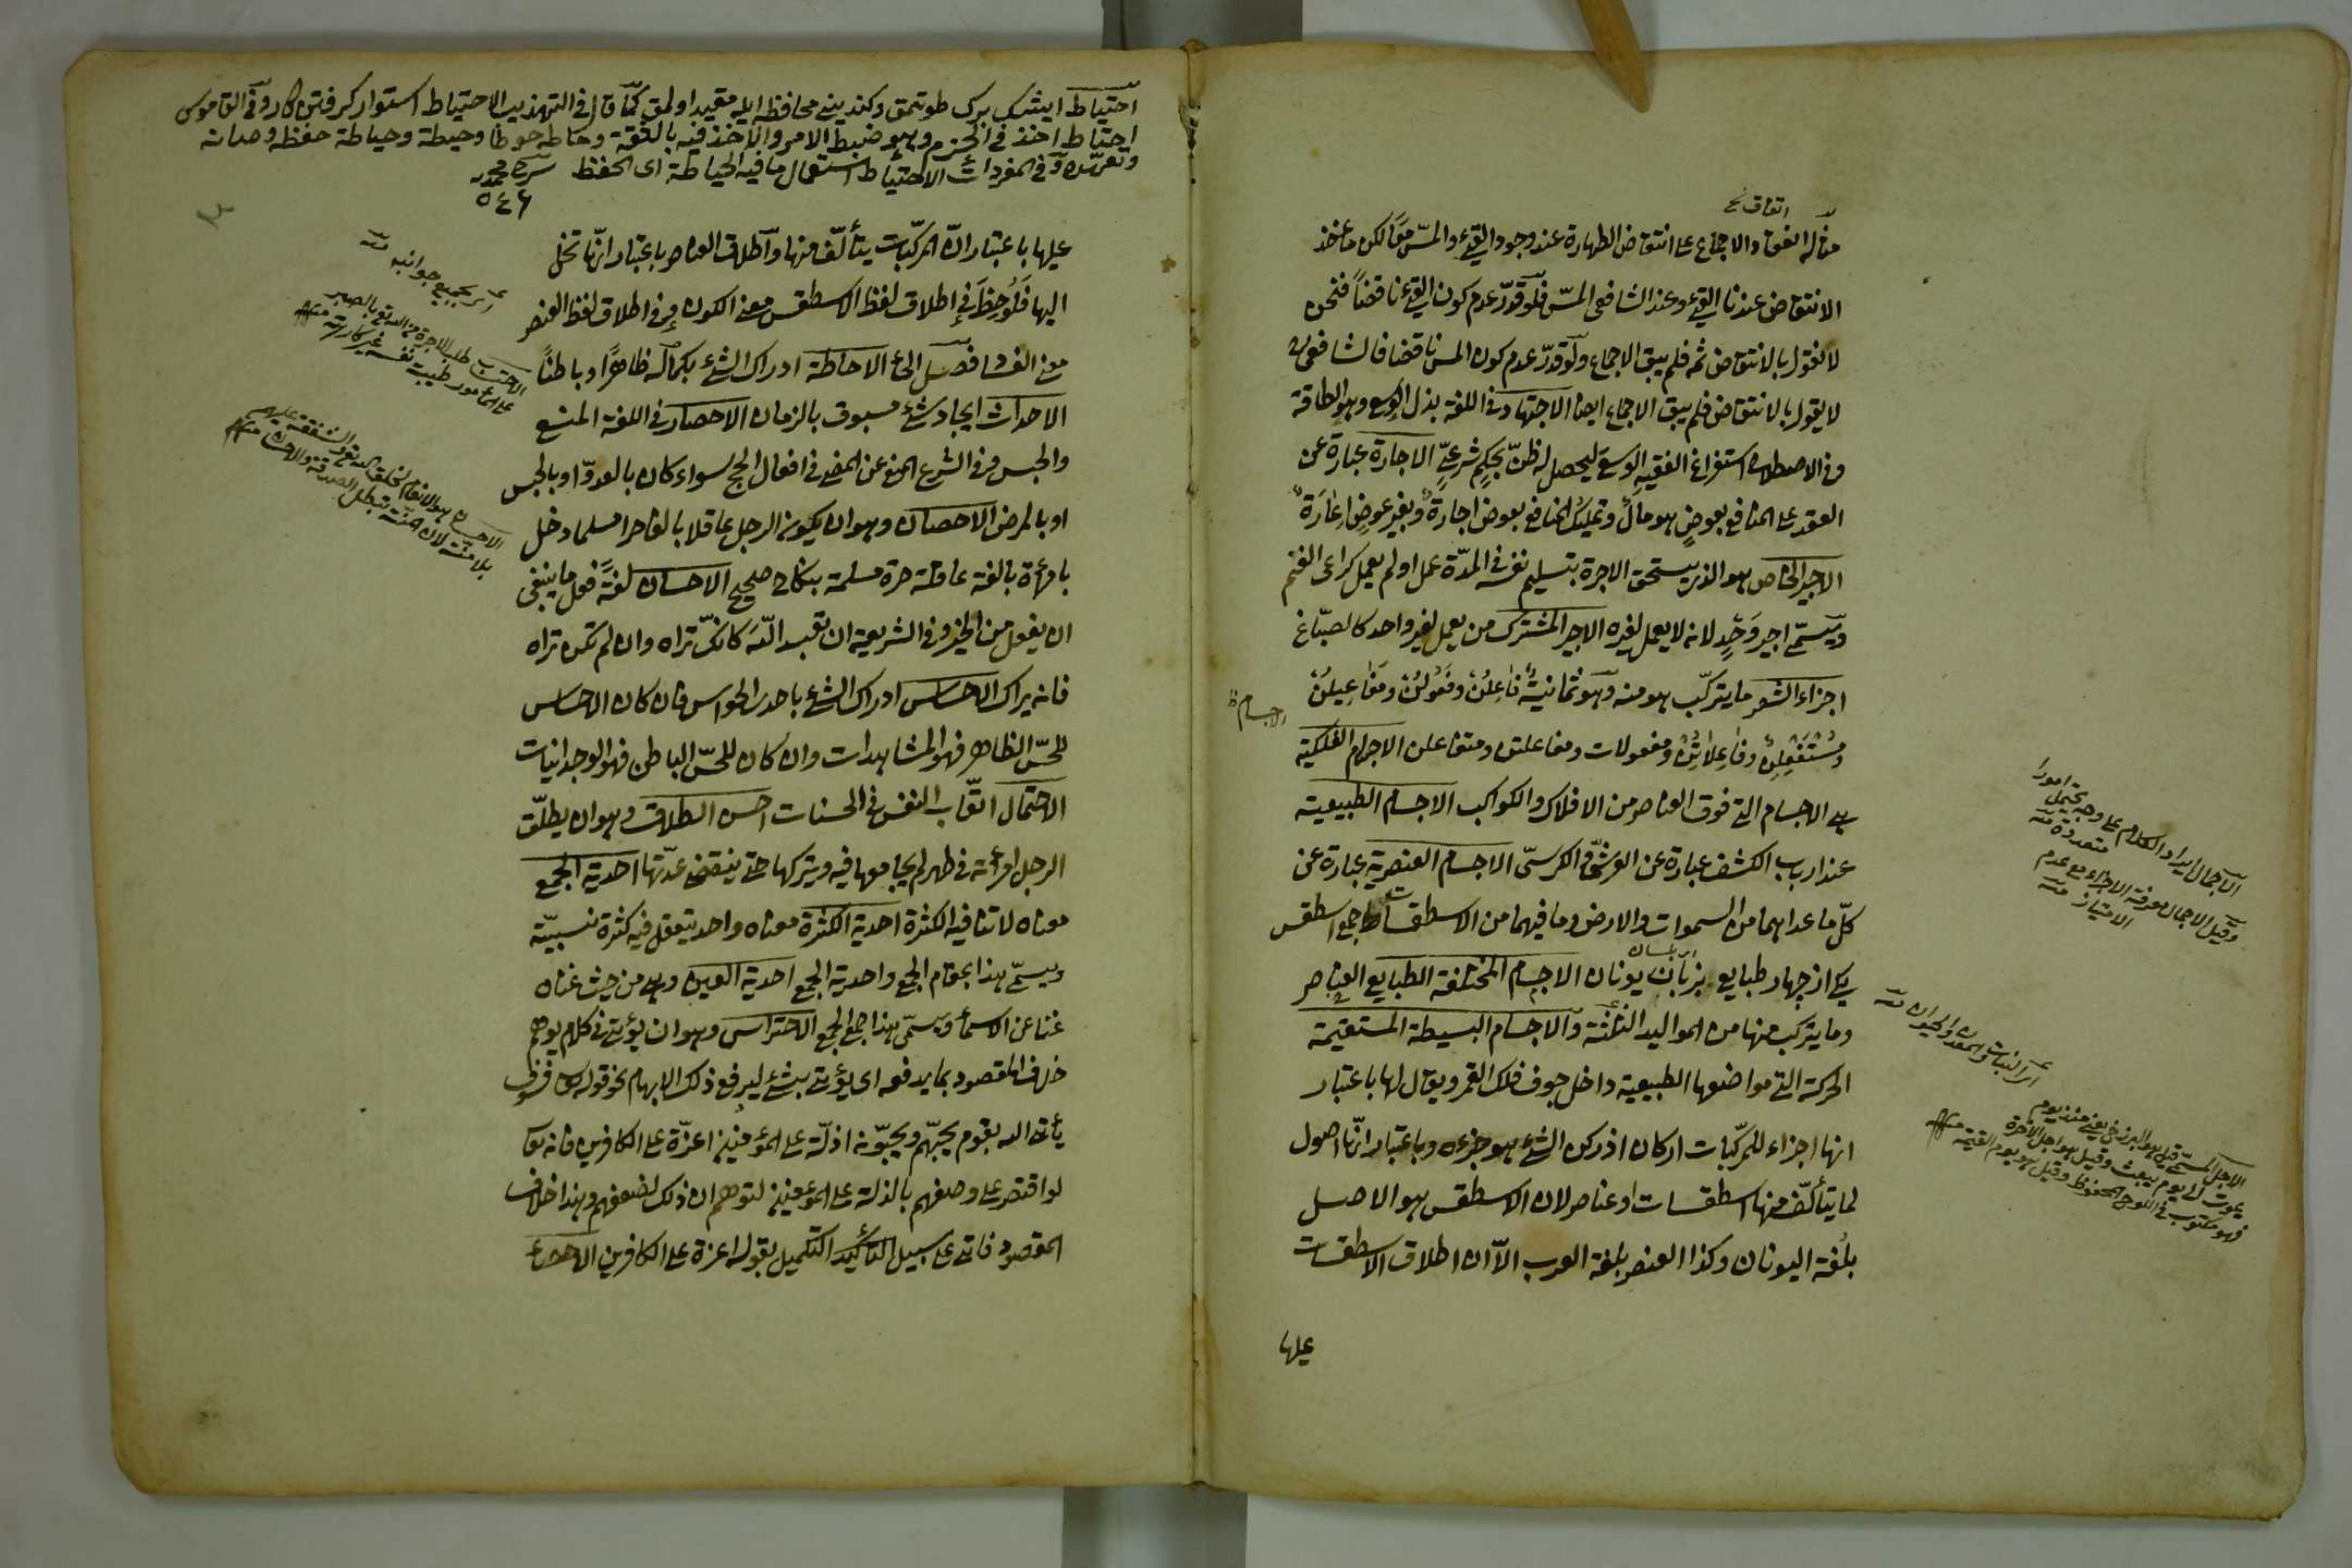 اتفاق نخ
مثاله انعقاد الاجماع على انتقاض الطهارة عند وجود القئ والمسّ معًا لكن مأخذ
الانتقاض عندنا القئ وعند الشافعى المسّ فلو قدّر عدم كون القئ ناقضاً فنحن
لا نقول بالانتقاض ثمه فلم يبق الاجماع ولو قدّر عدم كون المس ناقضا فالشافعى
لا يقول بالانتقاض فلم يبق الاجماع ايضا الاجتهاد فى اللغة بذل الوسع وهو الطاقة
وفى الاصطلاح استفراغ الفقيه الوسع ليحصل له ظنّ بحكم شرعىّ الاجارة عبارة عن
العقد على المنافع بعوض هو مال وتمليك المنافع بعوض اجارة وبغير عوض اعارة
الاجير الخاص هو الذى يستحق الاجرة بتسليم نفسه فى المدّة عمل او لم يعمل كراعى الغنم
ويسمّى اجير وَحْدٍ لانه لا يعمل لغيره الاجير المشترك من يعمل لغير واحد كالصبّاغ
اجزاء الشعر ما يتركّب هو منه وهو ثمانية فاعِلُنْ وفَعُولُنْ ومَفَاعِيلُنْ
ومُسْتَفْعِلُنْ وفاعِلاتُنْ ومفعولات ومفاعلتن ومتفاعلن الاجرام الفلكية
الاجسام ظ
هى الاجسام التى فوق العناصر من الافلاك والكواكب الاجسام الطبيعية
عند ارباب الكشف عبارة عن العرش والكرسىّ الاجسام العنصرية عبارة عن
كلّ ما عداهما من السموات والارض وما فيهما من الاسطقسات جمع اسطقس
يكى از چهار طبايع بزبان يونان الاجسام المختلفة الطبايع العناصر
وما يتركب منها من المواليد الثلثة والاجسام البسيطة المستقيمة
الحركة التى مواضعها الطبيعية داخل جوف فلك القمر ويقال لها باعتبار
انها اجزاء للمركّبات اركان اذ ركن الشئ هو جزءه وباعتبار انّها اصول
لما يتألّف منها اسطقسات وعناصر لان الاسطقس هو الاصل
بلغة اليونان وكذا العنصر بلغة العرب الاّ ان اطلاق الاسطقسات
عليها
الاجمال ايراد الكلام على وجه يحتمل امورا
متعددة منه
وقيل الاجمال معرفة الاجزاء مع عدم
الامتياز منه
اى النبات والمعدن والحيوان منه
الاجل المسمّى قيل هو البرزخ يعنى منذ يوم
يموت الى يوم يبعث وقيل هو اجل الآخرة
فهو مكتوب فى اللوح المحفوظ وقيل هو يوم القيمة منه
احتياط ايشك برك طوتمق وكندينى محافظه ايله مقيد اولمق كما قال فى التهذيب الاحتياط استوار كرفتن كار وفى القاموس
احتاط اخذ فى الحزم وهو ضبط الامر والاخذ فيه بالثقة وحاطه حوطا وحيطة وحياطة حفظه وصانه
وتعهّده وفى المفردات الاحتياط استعمال ما فيه الحياطة اى الحفظ
عليها باعتبار انّ المركّبات يتألّف منها واطلاق العناصر باعتبار انّها تنحلّ
اليها فلُوحِظَ فى اطلاق لفظ الاسطقس معنى الكون وفى اطلاق لفظ العنصر
معنى الفساد الاحاطة ادراك الشئ بكماله ظاهرًا وباطناً
الاحداث ايجاد شئ مسبوق بالزمان الاحصار فى اللغة المنع
والحبس وفى الشرع المنع عن المضى فى افعال الحج سواء كان بالعدوّ او بالحبس
او بالمرض الاحصان وهو ان يكون الرجل عاقلا بالغا حرا مسلما دخل
بامرأة بالغة عاقلة حرة مسلمة بنكاح صحيح الاحسان لغةً فعل ما ينبغى
ان يفعل من الخير وفى الشريعة ان تعبد اللّه كانّك تراه وان لم تكن تراه
فانه يراك الاحساس ادراك الشئ باحدى الحواس فان كان الاحساس
للحسّ الظاهر فهو المشاهدات وان كان للحسّ الباطن فهو الوجدانيات
الاحتمال اتعاب النفس فى الحسنات احسن الطلاق وهو ان يطلّق
الرجل امرأته فى طهر لم يجامعها فيه ويتركها حتى ينقضى عدّتها احدية الجمع
معناه لا تنافيه الكثرة احدية الكثرة معناه واحد يتعقل فيه كثرة نسبيّة
ويسمّى هذا بمقام الجمع واحدية الجمع احدية العين وهى من حيث غناه
عنّا عن الاسماء ويسمّى هذا جمع الجمع الاحتراس وهو ان يؤتى فى كلام يوهم
خلاف المقصود بما يدفعه اى يؤتى بشئ ليرفع ذلك الابهام نحو قوله تع فسوف
يأتى الله بقوم يحبّهم ويحبّونه اذلّة على المؤمنين اعزّة على الكافرين فانه تع
لو اقتصر على وصفهم بالذلة على المؤمنين لتوهم ان ذلك لضعفهم وهذا خلاف
المقصود فاتى على سبيل التأكيد التكميل بقوله اعزة على الكافرين الاحصاء
اى بجميع جوانبه منه
الاحتساب طلب الاجرة من الله تع بالصبر
على المأمور طيبت نفسه غير كارهة منه
الاحسان هو الانعام لخلق الله تع والشفقة عليهم
بلا منّة لان المنّة تبطل الصدقة والاحسان منه